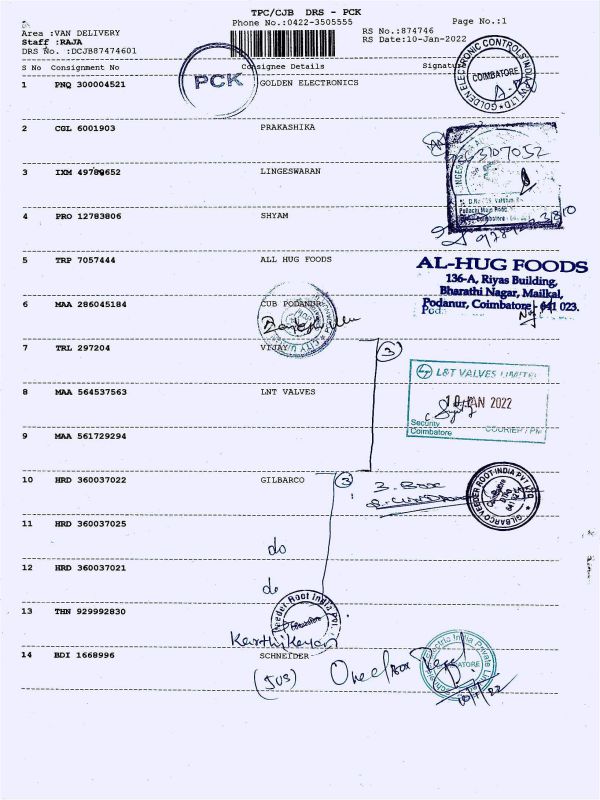 TPC/CJB DRS - PCK
Phone No.:0422-3505555
Page No.:1
Area :VAN DELIVERY
RS No.:874746
Staff :RAJA
RS Date:10-Jan-2022
DRS No. :DCJB87474601
S No Consignment No Consignee Details Signature
PCK
GOLDEN ELECTRONIC CONTROLS INDIA PVT LTD
COIMBATORE
1 PNQ 300004521 GOLDEN ELECTRONICS
2 CGL 6001903 PRAKASHIKA
3 IXM 49789652 LINGESWARAN
4 PRO 12783806 SHYAM
5 TRP 7057444 ALL HUG FOODS
AL-HUG FOODS
136-A, Riyas Building,
Bharathi Nagar, Mailkal,
Podanur, Coimbatore - 641 023.
6 MAA 286045184 CUB PODANUR
7 TRL 297204 VIJAY
3
L&T VALVES LIMITED
10 JAN 2022
Security
Coimbatore
COURIER / PM
8 MAA 564537563 LNT VALVES
9 MAA 561729294
10 HRD 360037022 GILBARCO
3
3. Box
GILBARCO VEEDER ROOT INDIA PVT LTD
11 HRD 360037025
do
12 HRD 360037021
do
13 THN 929992830
Veeder Root India Pvt.
Coimbatore
Karthikeyan
14 BDI 1668996 SCHNEIDER
(JUS)
One Box Recd
Electric India Private
COIMBATORE
10/1/22